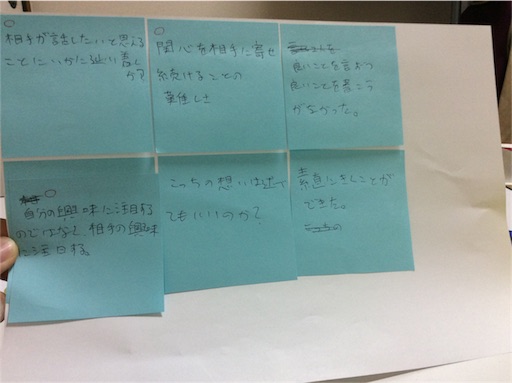 相手が話したいと思える
ことにいかに辿り着く
か?
関心を相手に寄せ
続けることの
難しさ
良いことを言おう
良いことを書こう
がなかった。
自分の興味に注目する
のではなく、相手の興味
に注目する。
こっちの想いは述べ
てもいいのか?
素直にきくことが
できた。